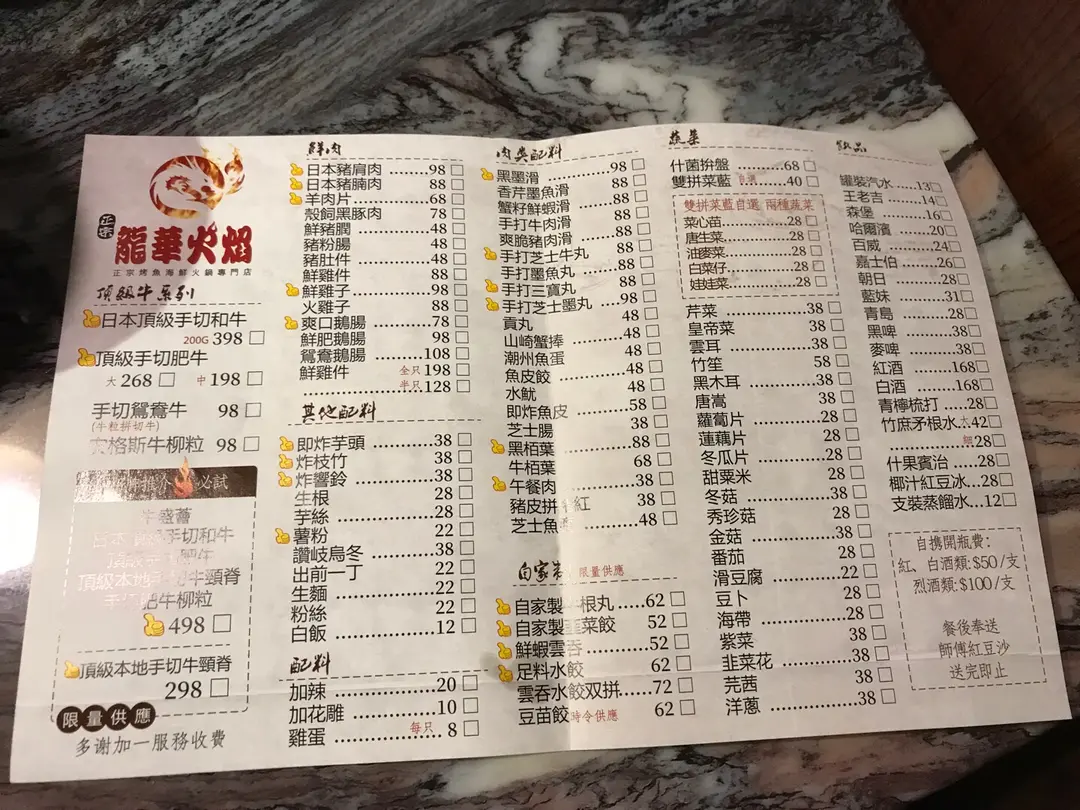 正宗
龍華火焰
正宗烤魚海鮮火鍋專門店
頂級牛系列
日本頂級手切和牛
200G 398
頂級手切肥牛
大 268 中 198
手切鴛鴦牛 98
(牛粒拼切牛)
格斯牛柳粒 98
推介 必試
牛盛薈
日本頂級手切和牛
頂級 肥牛
頂級本地手切牛頸脊
肥牛柳粒
498
頂級本地手切牛頸脊
298
限量供應
多谢加一服務收費
鮮肉
日本豬肩肉 ........98
日本豬腩肉 88
羊肉片 ..............68
殼飼黑豚肉 78
鮮豬膶 ..............48
豬粉腸 48
豬肚件 ..............48
鮮雞件 88
鮮雞子 ..............98
火雞子 88
爽口鵝腸 ..........78
鮮肥鵝腸 98
鴛鴦鵝腸 ........108
鮮雞件 全只 198
半只 128
其他配料
即炸芋頭 ............38
炸枝竹 ...............38
炸響鈴 ...............38
生根 28
芋絲 ..................28
薯粉 22
讚岐烏冬 ............38
出前一丁 22
生麵 ..................22
粉絲 22
白飯 ..................12
配料
加辣 ..................20
加花雕 ...............10
雞蛋 ............每只 8
肉與配料
黑墨滑 ...............98
香芹墨魚滑 88
蟹籽鮮蝦滑 ........88
手打牛肉滑 88
爽脆豬肉滑 ........88
手打芝士牛丸 88
手打墨魚丸 ........88
手打三寶丸 88
手打芝士墨丸 ...98
貢丸 48
山崎蟹捧 ...........48
潮州魚蛋 48
魚皮餃 ..............48
水魷 48
即炸魚皮 ...........58
芝士腸 38
黑栢葉 ..............88
牛栢葉 68
午餐肉 ..............38
豬皮拼 紅 38
芝士魚 .........48
自家 限量供應
自家製 根丸 .....62
自家製韮菜餃 52
鮮蝦雲吞 ..........52
足料水餃 62
雲吞水餃双拼......72
豆苗餃 時令供應 62
蔬菜
什菌拚盤 ...........68
雙拼菜籃 自選 .....40
雙拼菜藍自選 兩種蔬菜
菜心苗 ............28
唐生菜 ............28
油麥菜 ............28
白菜仔 ............28
娃娃菜 ............28
芹菜 ................38
皇帝菜 38
雲耳 ................38
竹笙 58
黑木耳 ............38
唐嵩 38
蘿蔔片 ............28
蓮藕片 28
冬瓜片 ............28
甜粟米 28
冬菇 ................38
秀珍菇 28
金菇 ................38
番茄 28
滑豆腐 ............22
豆卜 28
海帶 ................28
紫菜 38
韭菜花 ............38
芫茜 38
洋蔥 ................38
飲品
罐裝汽水 .....13
王老吉 ........14
森堡 ...........16
哈爾濱 ........20
百威 ...........24
嘉士伯 ........26
朝日 ...........28
藍妹 ...........31
青島 ...........28
黑啤 ...........38
麥啤 ...........38
紅酒 .........168
白酒 .........168
青檸梳打 .....28
竹庶矛根水 大42
........ 28
什果賓治 .....28
椰汁紅豆冰...28
支裝蒸餾水...12
自攜開瓶費:
紅、白酒類: $50/支
烈酒類: $100/支
餐後奉送
師傅紅豆沙
送完即止